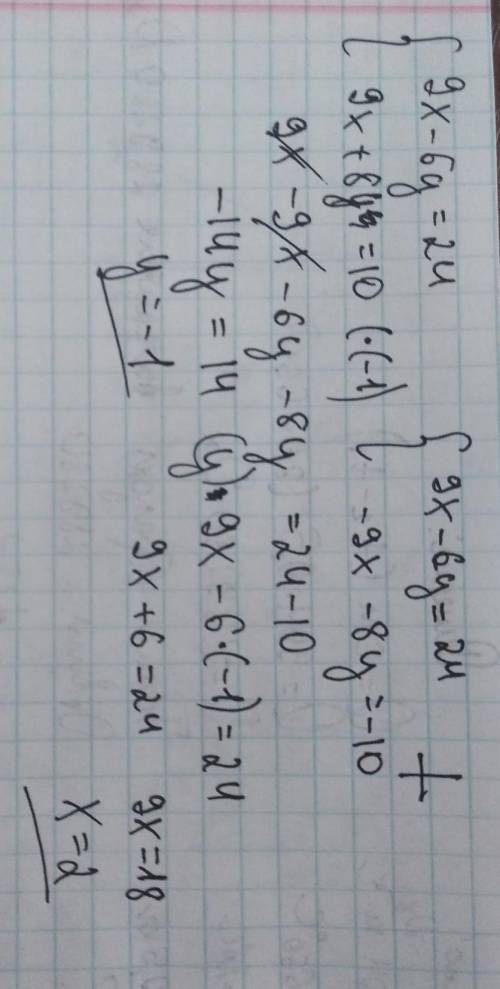 { 9x - 6y = 24 { 9x - 6y = 24
{ 9x + 8y = 10 (·(-1) { -9x - 8y = -10 +
9x - 9x - 6y - 8y = 24 - 10
-14y = 14 (y) 9x - 6·(-1) = 24
y = -1 9x + 6 = 24 9x = 18
x = 2